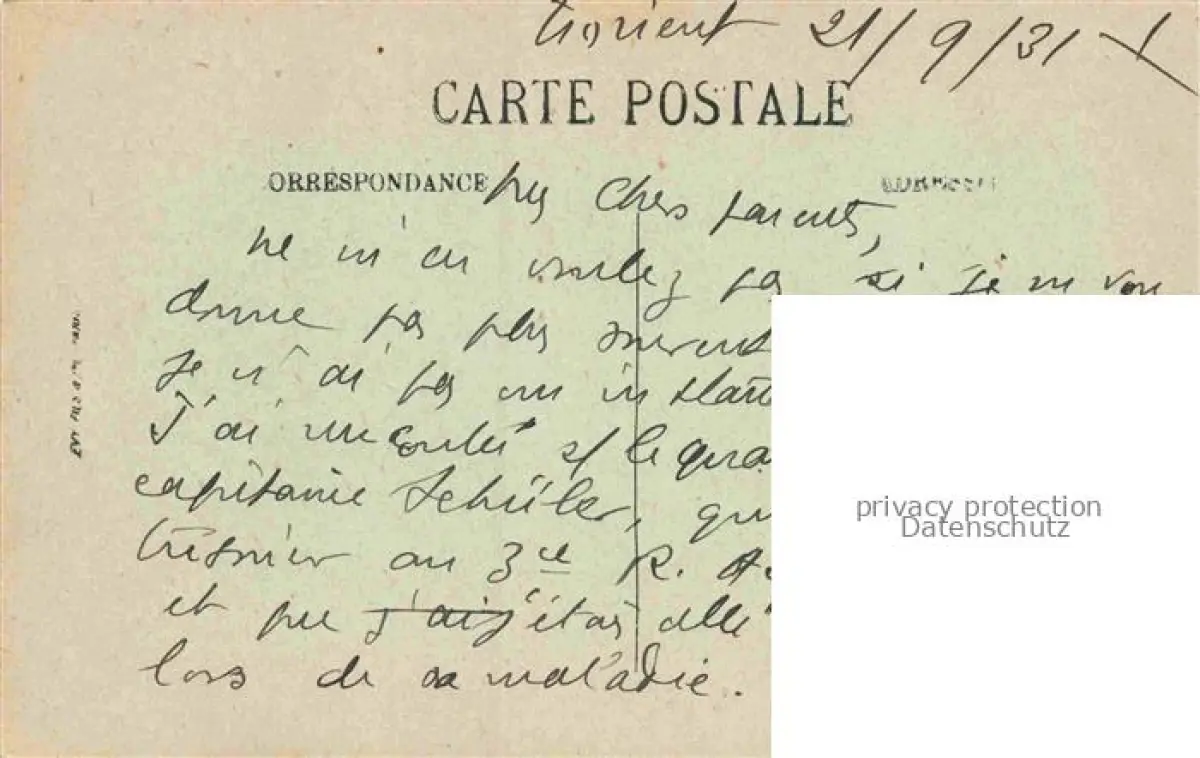 Lorient 21/9/31
CARTE POSTALE
ORRESPONDANCE
ADRESSE
Mes chers parents,
ne m'en voulez pas si je ne vous
donne pas plus souvent
Je n'ai pas un instant
J'ai rencontré le
capitaine Schüler,
trésorier au 3ce R. A.
et que j'ai j'étais allé
lors de sa maladie.
privacy protection
Datenschutz